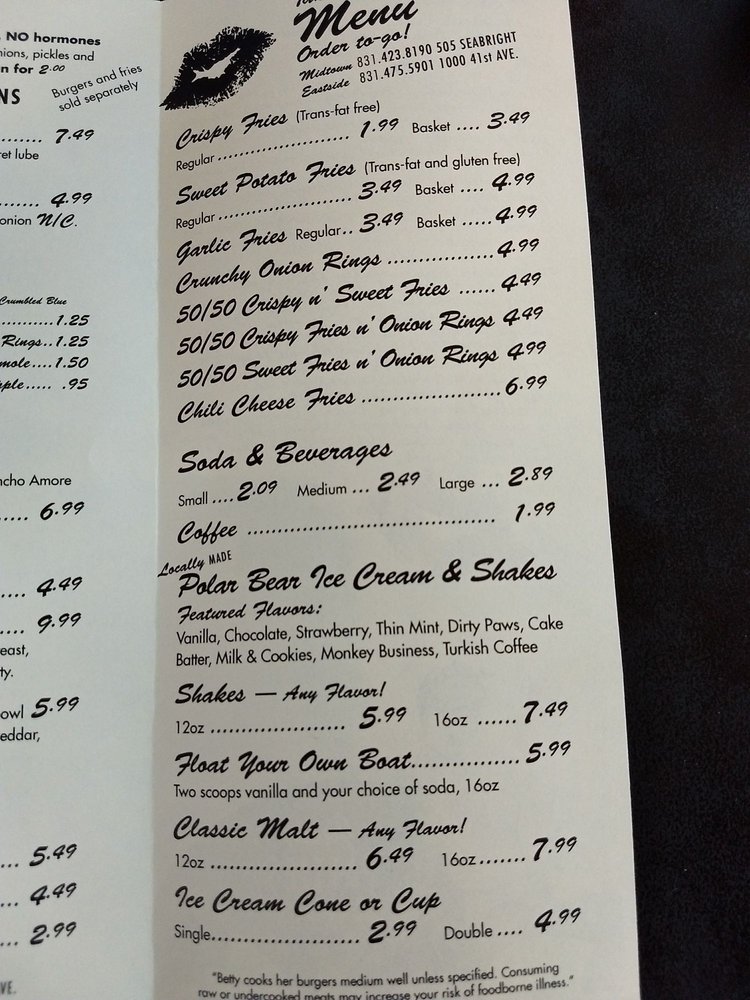 NO hormones
nions, pickles and
n for 2.00
NS
Burgers and fries
sold separately
7.49
ret lube
4.99
onion N/C.
Crumbled Blue
1.25
Rings..1.25
mole....1.50
pple..... .95
ncho Amore
6.99
4.49
9.99
east,
ty.
owl 5.99
eddar,
5.49
4.49
2.99
VE.
Menu
Order to-go!
Midtown 831.423.8190 505 SEABRIGHT
Eastside 831.475.5901 1000 41st AVE.
Crispy Fries (Trans-fat free)
Regular .................... 1.99 Basket .... 3.49
Sweet Potato Fries (Trans-fat and gluten free)
Regular .................... 3.49 Basket .... 4.99
Garlic Fries Regular.. 3.49 Basket ..... 4.99
Crunchy Onion Rings ................ 4.99
50/50 Crispy n' Sweet Fries ...... 4.49
50/50 Crispy Fries n' Onion Rings 4.49
50/50 Sweet Fries n' Onion Rings 4.99
Chili Cheese Fries ..................... 6.99
Soda & Beverages
Small .... 2.09 Medium ... 2.49 Large ... 2.89
Coffee ..................................... 1.99
Locally MADE
Polar Bear Ice Cream & Shakes
Featured Flavors:
Vanilla, Chocolate, Strawberry, Thin Mint, Dirty Paws, Cake
Batter, Milk & Cookies, Monkey Business, Turkish Coffee
Shakes — Any Flavor!
12oz .................... 5.99 16oz ...... 7.49
Float Your Own Boat................ 5.99
Two scoops vanilla and your choice of soda, 16oz
Classic Malt — Any Flavor!
12oz ...................... 6.49 16oz....... 7.99
Ice Cream Cone or Cup
Single...................... 2.99 Double .... 4.99
"Betty cooks her burgers medium well unless specified. Consuming
raw or undercooked meats may increase your risk of foodborne illness."